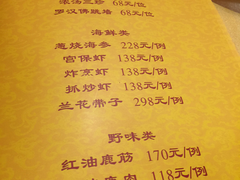 罗汉佛跳墙 68元/位
海鲜类
葱烧海参 228元/例
宫保虾 138元/例
炸烹虾 138元/例
抓炒虾 138元/例
兰花带子 298元/例
野味类
红油鹿筋 170元/例
鹿肉 118元/例